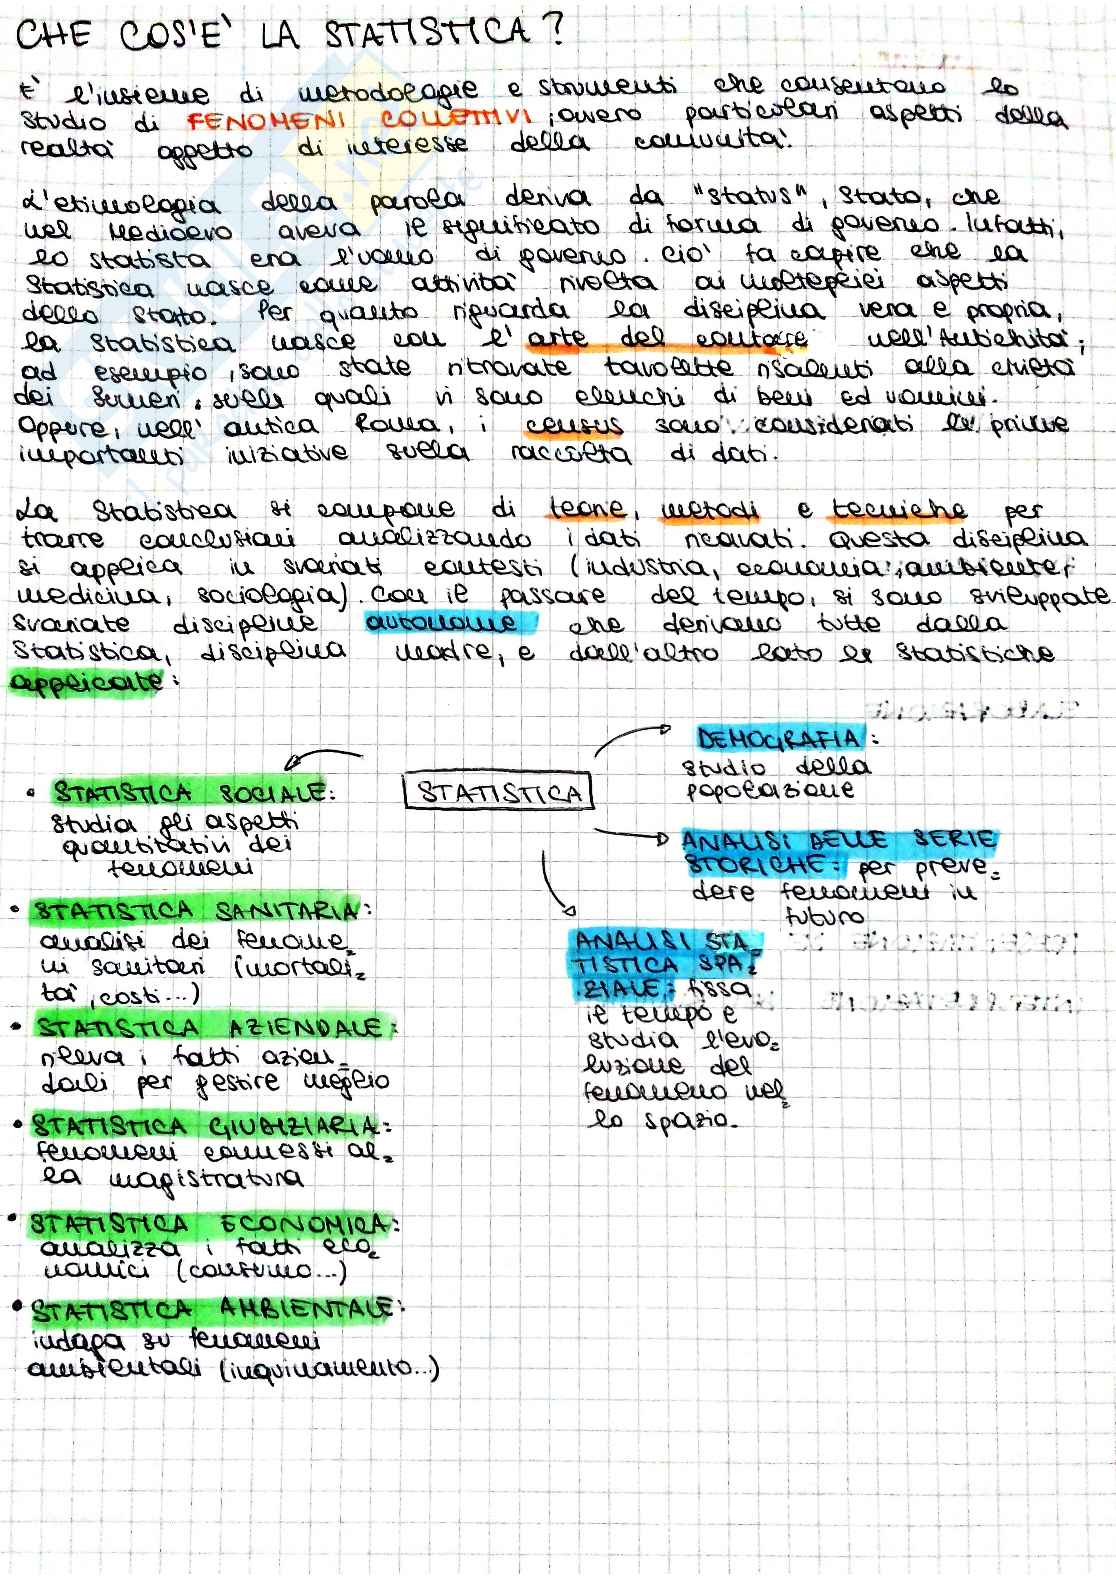 CHE COS'E' LA STATISTICA?
E' l'insieme di metodologie e strumenti che consentono lo
studio di FENOMENI COLLETTIVI, ovvero particolari aspetti della
realtà oggetto di interesse della comunità.
L'etimologia della parola deriva da "status", Stato, che
nel Medioevo aveva il significato di forma di governo. Infatti,
lo statista era l'uomo di governo. Ciò fa capire che la
Statistica nasce come attività rivolta ai molteplici aspetti
dello Stato. Per quanto riguarda la disciplina vera e propria,
la Statistica nasce con l'arte del contare nell'Antichità;
ad esempio, sono state ritrovate tavolette risalenti alla civiltà
dei Sumeri, sulle quali vi sono elenchi di beni ed uomini.
Oppure, nell'antica Roma, i census sono considerati le prime
importanti iniziative sulla raccolta di dati.
La Statistica si compone di teorie, metodi e tecniche per
trarre conclusioni analizzando i dati ricavati. Questa disciplina
si applica in svariati contesti (industria, economia, ambiente,
medicina, sociologia). Con il passare del tempo, si sono sviluppate
svariate discipline autonome che derivano tutte dalla
Statistica, disciplina madre, e dall'altro lato le Statistiche
applicate:
STATISTICA
• STATISTICA SOCIALE:
studia gli aspetti
quantitativi dei
fenomeni
• STATISTICA SANITARIA:
analisi dei fenome=
ni sanitari (mortali=
tà, costi...)
• STATISTICA AZIENDALE:
rileva i fatti azien=
dali per gestire meglio
• STATISTICA GIUDIZIARIA:
fenomeni connessi al=
la magistratura
• STATISTICA ECONOMICA:
analizza i fatti eco=
nomici (consumo...)
• STATISTICA AMBIENTALE:
indaga su fenomeni
ambientali (inquinamento...)
DEMOGRAFIA:
studio della
popolazione
ANALISI DELLE SERIE
STORICHE: per preve=
dere fenomeni in
futuro
ANALISI STA=
TISTICA SPA=
ZIALE: fissa
il tempo e
studia l'evo=
luzione del
fenomeno nel=
lo spazio.